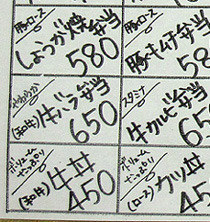 豚ロース
しょうが焼弁当
580
豚キムチ弁当
58
やわらか
(和牛)牛バラ弁当
650
スタミナ
牛カルビ弁当
65
ボリューム
たっぷり
(和牛)牛丼
450
ボリューム
たっぷり
(ロース)カツ丼
45